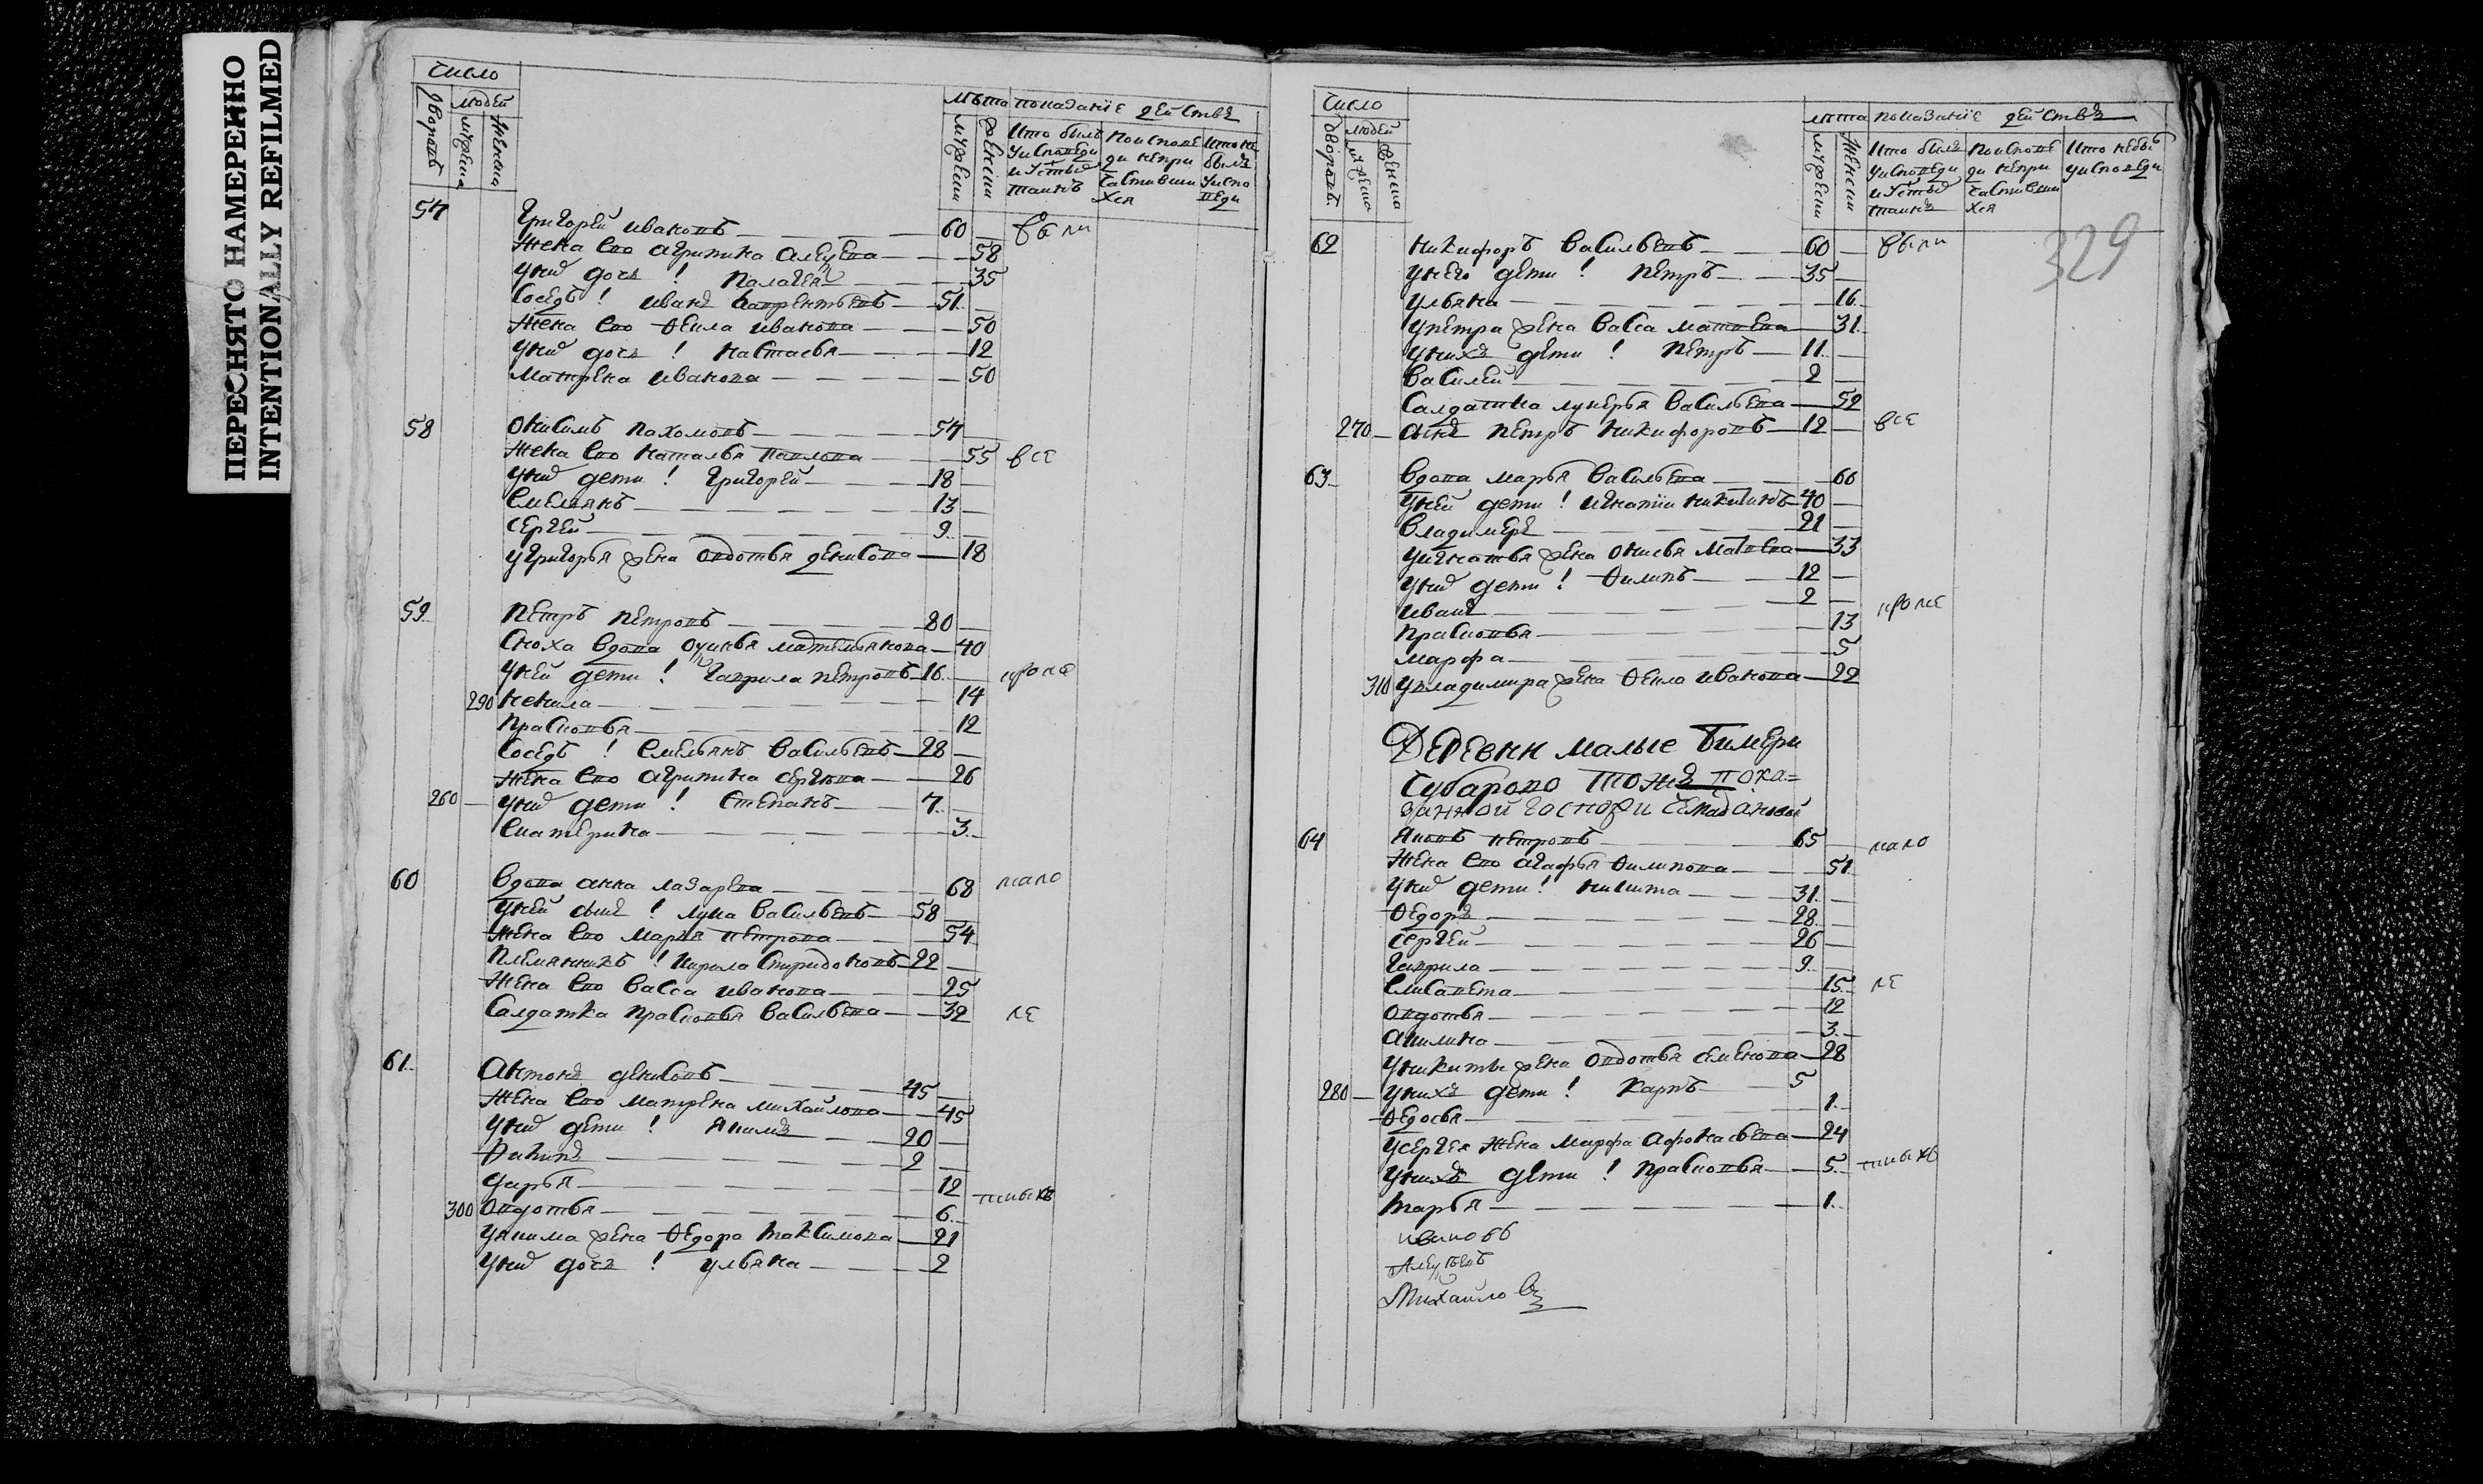 ПЕРЕСНЯТО НАМЕРЕННО
INTENTIONALLY REFILMED
число
дворовъ
людей
мужеска
женска
лѣта
показаніе действъ
мужески
женски
Кто былъ у исповеди и у стыхъ таинъ
по исповеди не причастившихся
кто не былъ у исповеди
57
Григорей Ивановъ 60 были
жена ево Агрипина Алеѯева 58
у них дочь ! Палагея 35
Соседъ ! Иванъ Лаврентьевъ 51
жена ево Ѳекла Иванова 50
у них дочь ! Настасья 12
Матрена Иванова 50
58 Онисимъ Пахомовъ 57
жена ево Наталья Павлова 55 все
у них дети ! Григорей 18
Емельянъ 13
Сергей 9
у Григорья жена Овдотья Денисова 18
59 Петръ Петровъ 80
Сноха вдова 40
у ней дети ! Гаврила Петровъ 16 кроме
290 Ненила 14
Прасковья 12
Соседъ ! Емельянъ Васильевъ 28
жена ево Агрипина Сергеева 26
260 у них дети ! Степанъ 7
Екатерина 3
60 Вдова Анна Лазарева 68 мало
у ней сынъ ! Лука Васильевъ 58
жена ево Марья Петрова 54
Племянникъ ! Кирила Спиридоновъ 22
жена ево Васса Иванова 25
Салдатка Прасковья Васильева 32 ле
61 Антонъ Денисовъ 45
жена ево Матрена Михайлова 45
у них дети ! Якимъ 20
Филипъ 2
Дарья 12
300 Овдотья 6 тныхъ
у Якима жена Ѳедора Максимова 21
у них дочь ! Ульяна 2
число
дворовъ
людей
мужеска
женска
лѣта
показаніе действъ
мужески
женски
Кто былъ у исповеди и у стыхъ таинъ
по исповеди не причастившихся
Кто не былъ у исповеди
329
62 Никифоръ Васильевъ 60 были
у него дети ! Петръ 35
Ульяна 16
у Петра жена Васса Матвева 31
у нихъ дети ! Петръ 11
Василей 2
Салдатка Лукерья Васильева 52
270 сынъ Петръ Никифоровъ 12 все
63 Вдова Марья Васильева 66
у ней дети ! Игнатіи Никитинъ 40
Владимеръ 21
у Игнатья жена Онисья Матвева 33
у них дети ! Ѳилипъ 12
Иванъ 2 кроме
Прасковья 13
Марфа 5
310 у Владимира жена Ѳекла Иванова 22
Деревни малые Бимери
Губарово тожъ пока=
занной госпожи Чемадановой
64 Яковъ Петровъ 65 мало
Жена ево Агафья Ѳилипова 51
у них дети ! Никита 31
Ѳедоръ 28
Сергей 26
Гаврила 9
Елисавета 15 ле
Овдотья 12
Акилина 3
у Никиты жена Овдотья Семенова 28
280 у нихъ дети ! Карпъ 5
Ѳедосья 1
у Сергея жена Марфа Афонасьева 24
у нихъ дети ! Прасковья 5 тныхъ
Марья 1
Алеѯѣевъ
Михайловъ